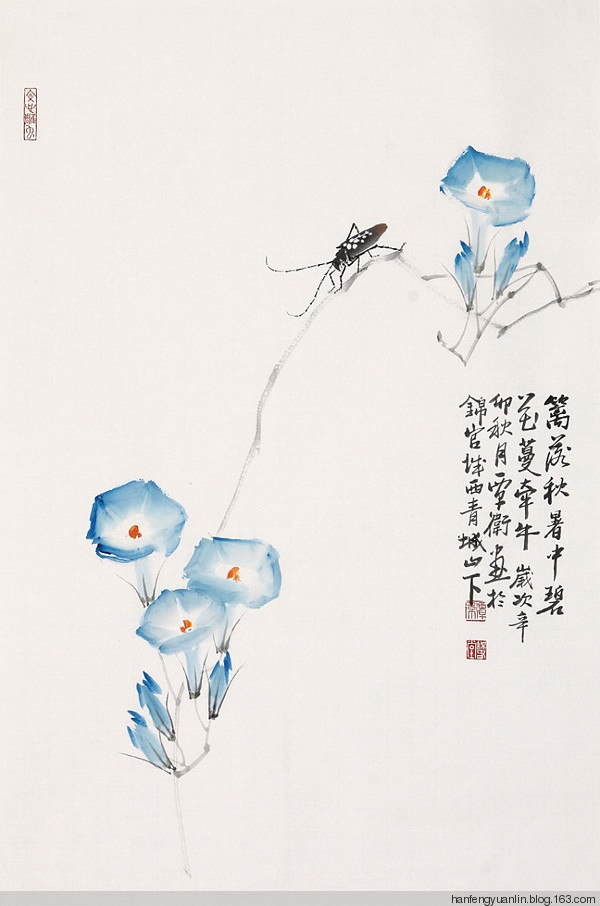 篱落秋暑中碧
花蔓牽牛 歲次辛
卯秋月覃衛畫於
錦官城西青城山下
hanfengyuanlin.blog.163.com